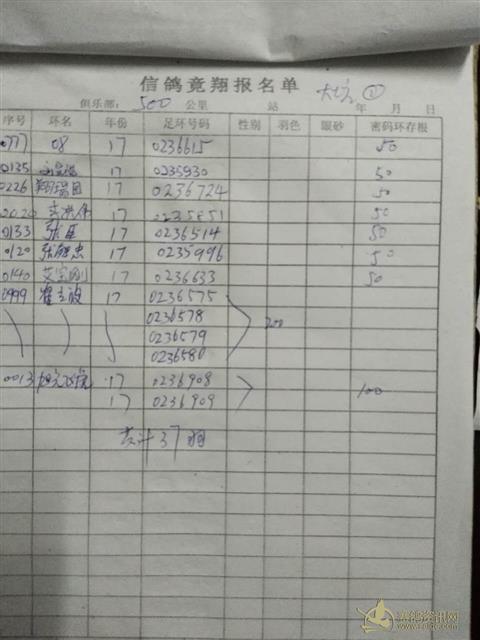 信鸽竞翔报名单
俱乐部: 500 公里 站 年 月 日
序号 环名 年份 足环号码 性别 羽色 眼砂 密码环存根
0777 08 17 0236615 50
0135 17 0235930 50
0226 翔瑞园 17 0236724 50
0020 17 0235851 50
0133 张臣 17 0236514 50
0120 张继忠 17 0235996 50
0140 艾宝刚 17 0236633 50
0999 17 0236575
0236578 200
0236579
0236580
0013 17 0236908
17 0236909 100
共计37羽
赛鸽资讯网